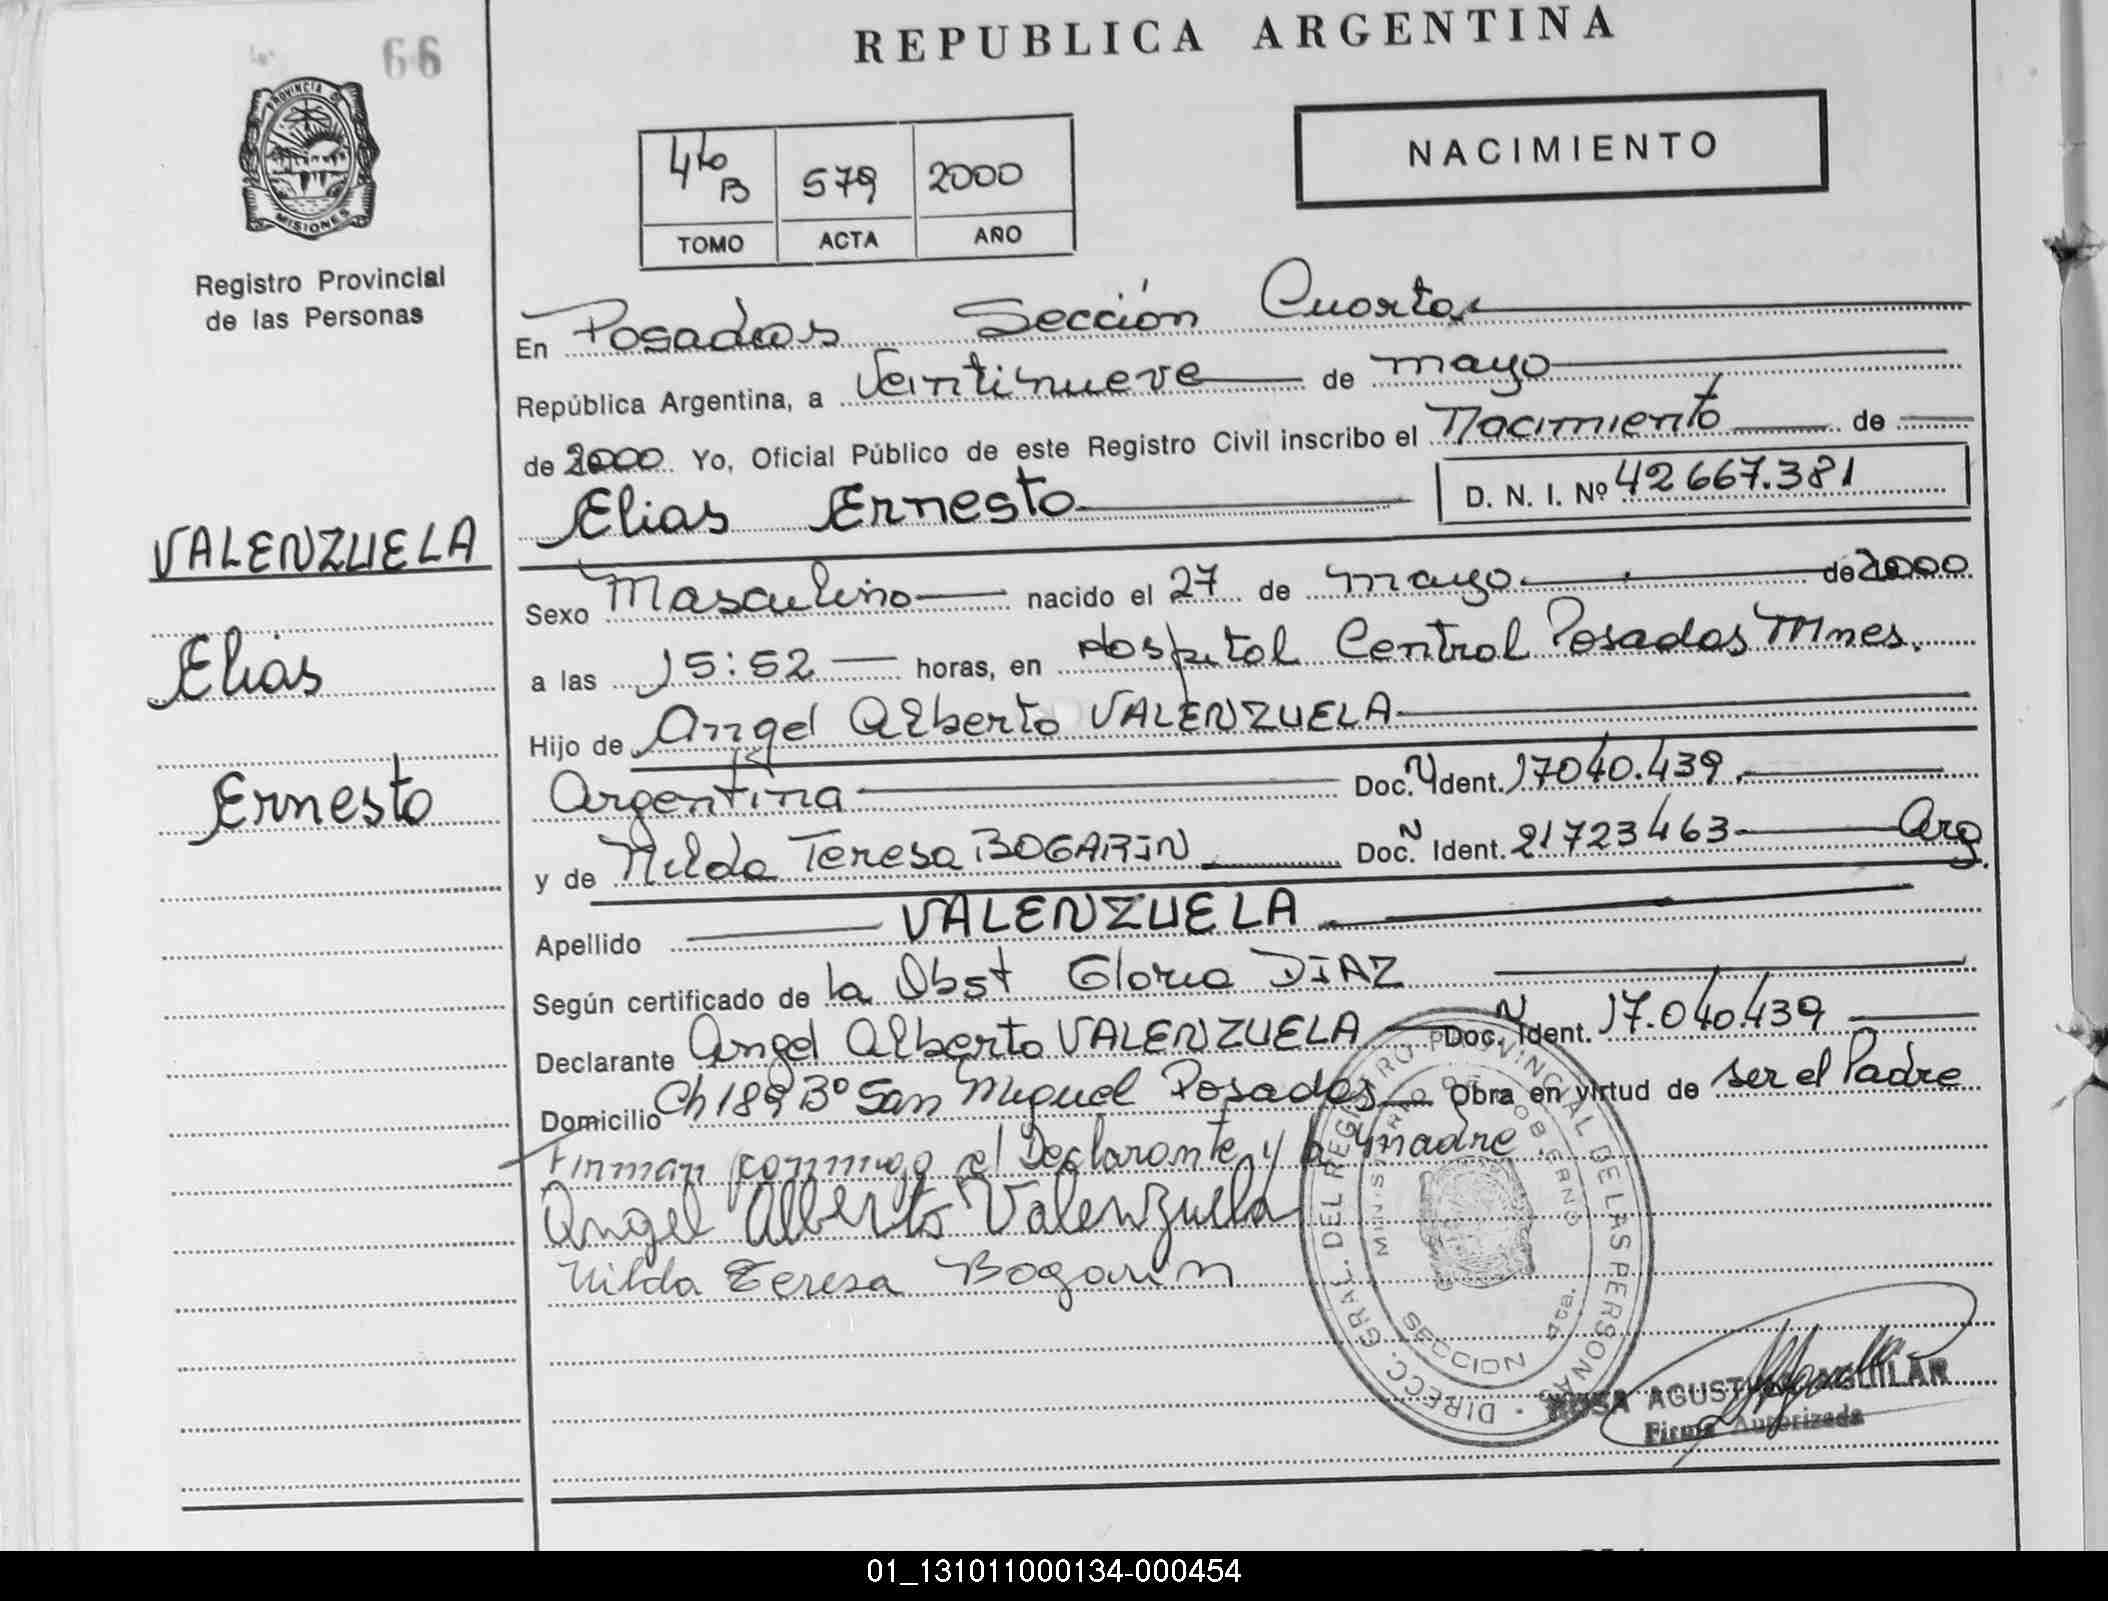 66
REPUBLICA ARGENTINA
PROVINCIA DE
MISIONES
Registro Provincial
de las Personas
4to B 579 2000
TOMO ACTA AÑO
NACIMIENTO
En Posadas Sección Cuarta
República Argentina, a Veintinueve de mayo
de 2000 Yo, Oficial Público de este Registro Civil inscribo el Nacimiento de
Elias Ernesto D. N. I. Nº 42667.381
VALENZUELA
Elias
Ernesto
Sexo Masculino nacido el 27 de mayo de 2000
a las 15:52 horas, en Hospital Central Posadas Mnes.
Hijo de Angel Alberto VALENZUELA
Argentina Doc. N Ident. 17040.439
y de Nilda Teresa BOGARIN Doc. N Ident. 21723463 Arg.
Apellido VALENZUELA
Según certificado de la Obst Gloria DIAZ
Declarante Angel Alberto VALENZUELA Doc. N Ident. 17.040.439
Domicilio Ch 189 Bº San Miguel Posadas Obra en virtud de ser el Padre
Firman conmigo el Declarante y la madre.
Angel Alberto Valenzuela
Nilda Teresa Bogarin
DIRECC. GRAL. DEL REGISTRO PROVINCIAL DE LAS PERSONAS
MINISTERIO DE GOBIERNO
SECCION 4ta.
ROSA AGUSTINA AGUILAR
Firma Autorizada
01_131011000134-000454